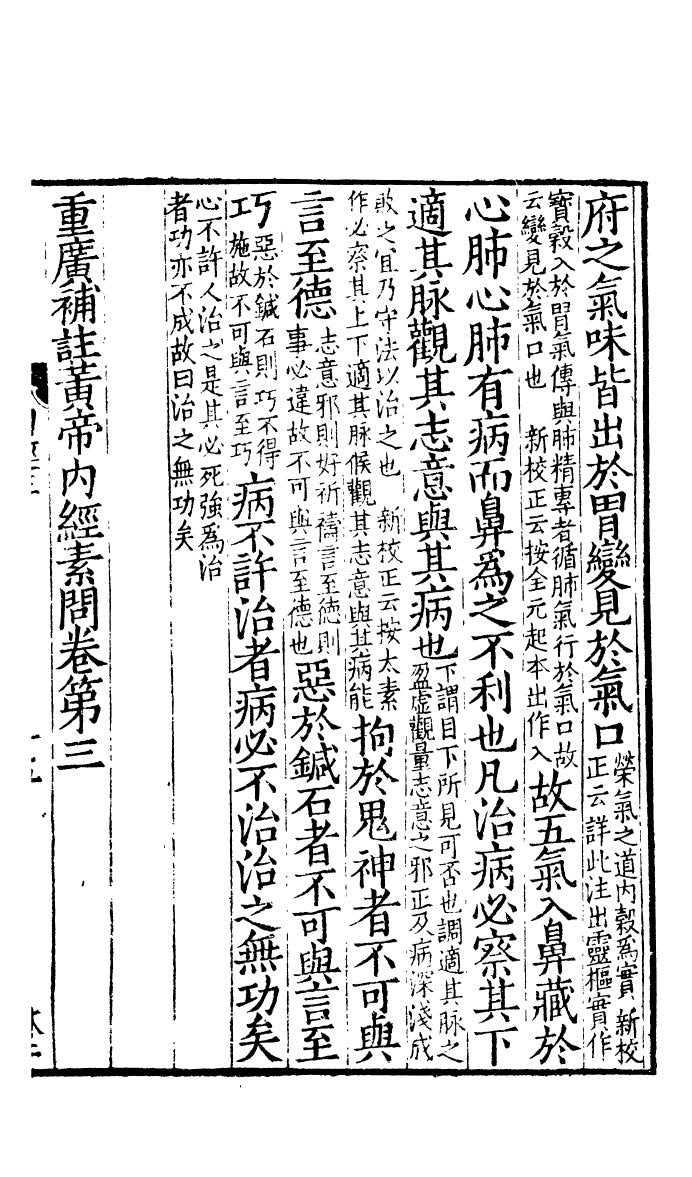 府之氣味皆出於胃變見於氣口榮氣之道内穀爲實 新校
正云詳此注出靈樞實作
寶穀入於胃氣傳與肺精專者循肺氣行於氣口故
云變見於氣口也 新校正云按全元起本出作入故五氣入鼻藏於
心肺心肺有病而鼻爲之不利也凡治病必察其下
適其脉觀其志意與其病也下謂目下所見可否也調適其脉之
盈虛觀量志意之邪正及病深淺成
敗之宜乃守法以治之也 新校正云按太素
作必察其上下適其脉候觀其志意與其病能拘於鬼神者不可與
言至德志意邪則好祈禱言至德則
事必違故不可與言至德也惡於鍼石者不可與言至
巧惡於鍼石則巧不得
施故不可與言至巧病不許治者病必不治治之無功矣
心不許人治之是其必死強爲治
者功亦不成故曰治之無功矣
重廣補註黃帝内經素問卷第三